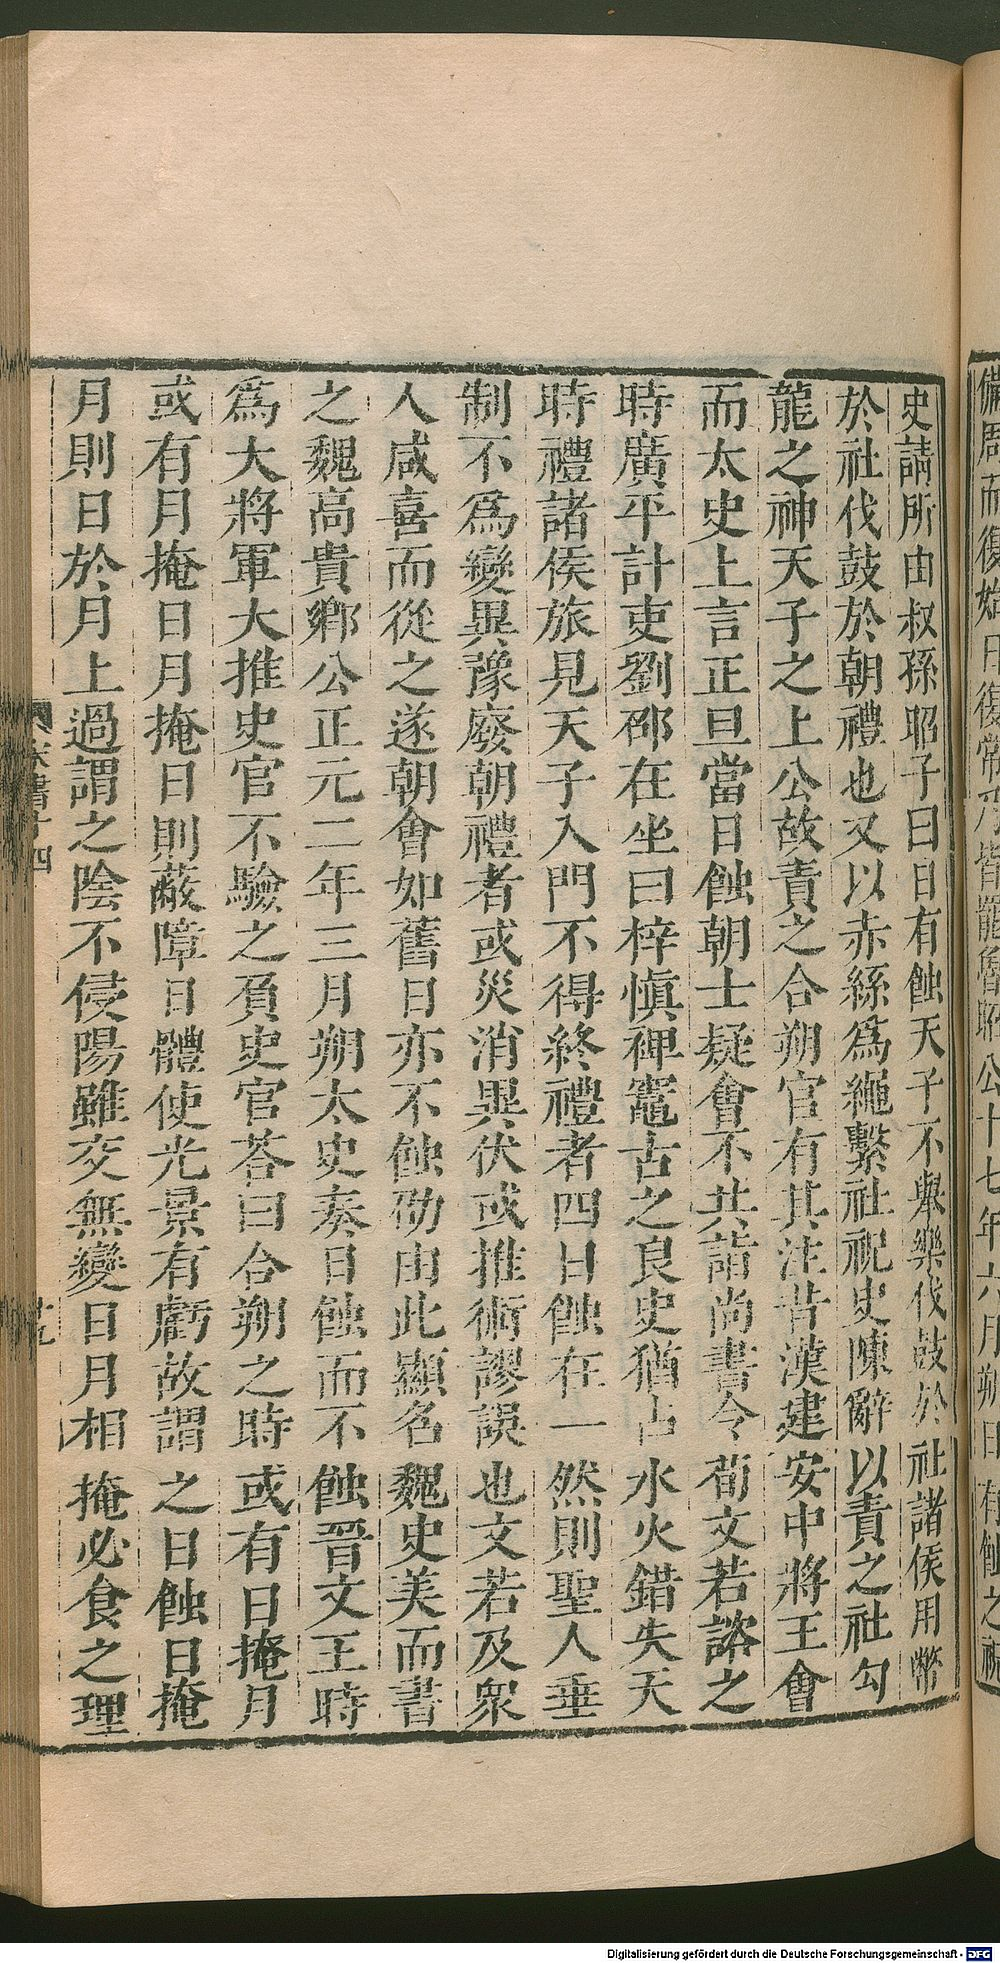 備周而復始日復常乃皆罷魯昭公十七年六月朔日有蝕之祝
史請所由叔孫昭子曰日有蝕天子不舉樂伐鼓於社諸侯用幣
於社伐鼓於朝禮也又以赤絲爲繩繫社祝史陳辭以責之社勾
龍之神天子之上公故責之合朔官有其注昔漢建安中將王會
而太史上言正旦當日蝕朝士疑會不共詣尚書令荀文若諮之
時廣平計吏劉邵在坐曰梓愼裨竈古之良史猶占水火錯失天
時禮諸侯旅見天子入門不得終禮者四日蝕在一然則聖人垂
制不爲變異豫廢朝禮者或災消異伏或推術謬誤也文若及衆
人咸喜而從之遂朝會如舊日亦不蝕劭由此顯名魏史美而書
之魏高貴鄉公正元二年三月朔太史奏日蝕而不蝕晉文王時
爲大將軍大推史官不驗之負史官荅曰合朔之時或有日掩月
或有月掩日月掩日則蔽障日體使光景有虧故謂之日蝕日掩
月則日於月上過謂之陰不侵陽雖交無變日月相掩必食之理
宋書十四
廿九
Digitalisierung gefördert durch die Deutsche Forschungsgemeinschaft - DFG